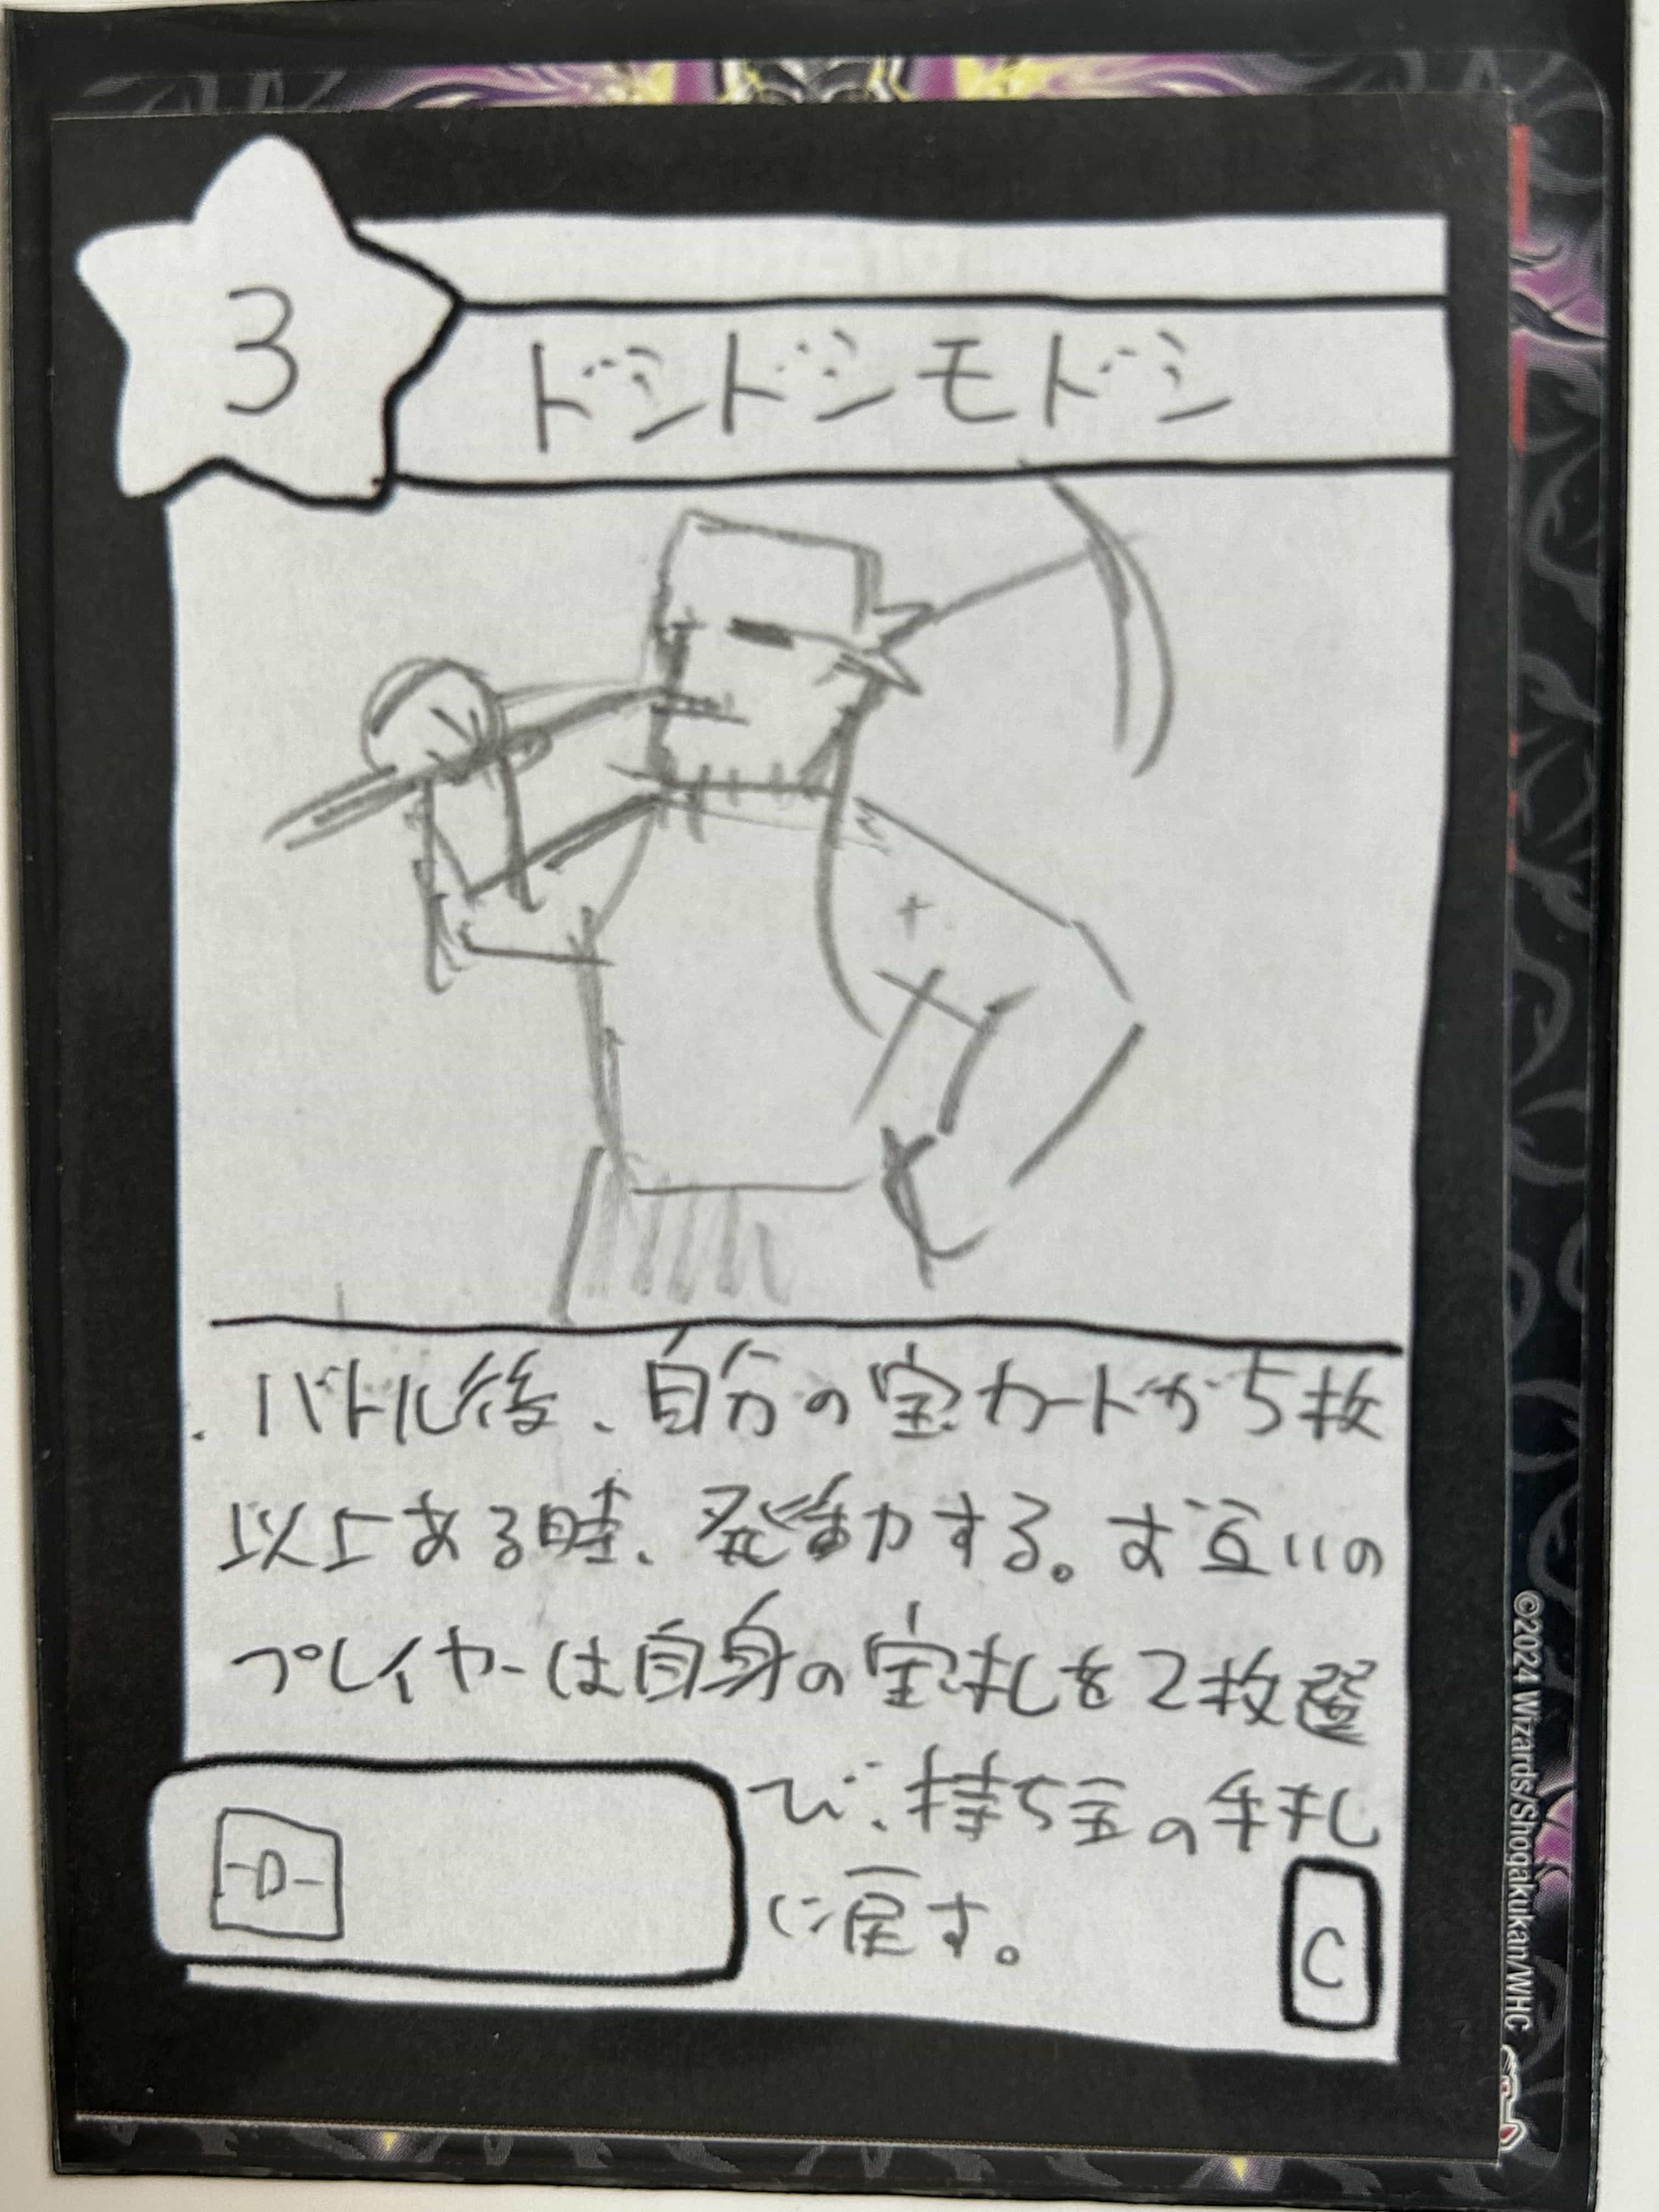 3
ドシドシモドシ
・バトル後、自分の宝カードが5枚
以上ある時、発動する。お互いの
プレイヤーは自身の宝札を2枚選
び、持ち主の手札
に戻す。
-D-
C
©2024 Wizards/Shogakukan/WHC